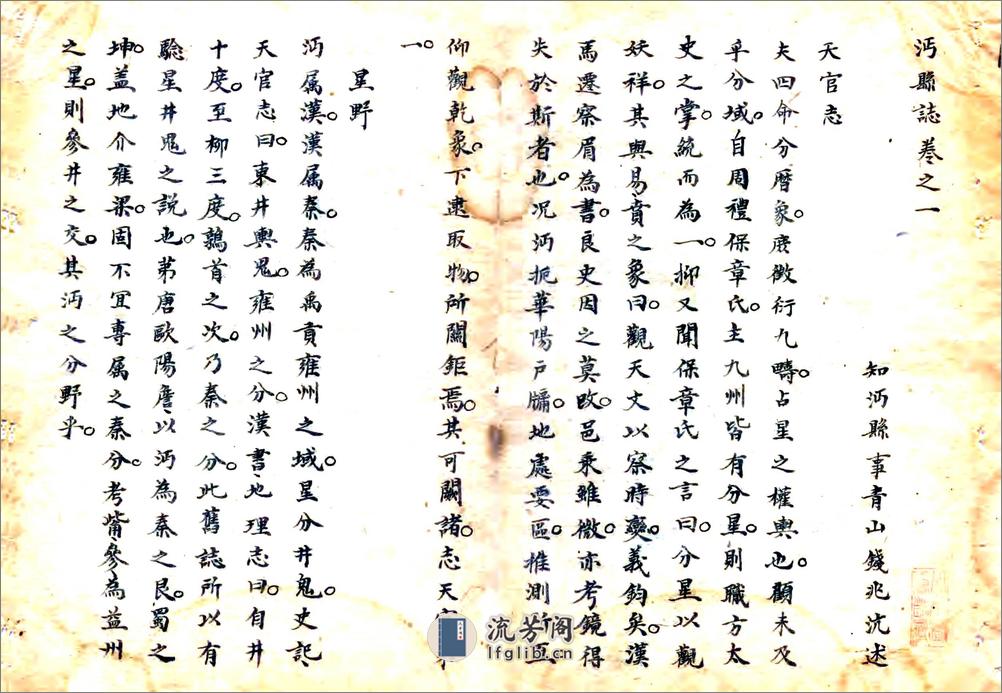 沔縣誌卷之一
知沔縣事青山錢兆沆述
天官志
夫四命分曆象。庶徵衍九疇。占星之權輿也。顧未及
乎分域。自周禮保章氏。主九州皆有分星。則職方太
史之掌。統而為一。抑又聞保章氏之言曰。分星以觀
妖祥。其與易賁之象曰。觀天文以察時變。義鈞矣。漢
馬遷察眉為書。良史因之莫改。邑乘雖微。亦考鏡得
失於斯者也。況沔扼華陽戶牖。地處要區。推測所
仰觀乾象。下逮取物。所關鉅焉。其可闕諸。志天
一。
星野
沔属漢。漢属秦。秦為禹貢雍州之域。星分井鬼。史記、
天官志曰。東井輿鬼。雍州之分。漢書、地理志曰。自井
十度。至柳三度。鶉首之次。乃秦之分。此舊誌所以有
騐星井鬼之説也。第唐歐陽詹、以沔為秦之艮。蜀之
坤。盖地介雍梁。固不宜專属之秦分。考觜參為益州
之星。則參井之交。其沔之分野乎。
流芳阁
lfglib.cn